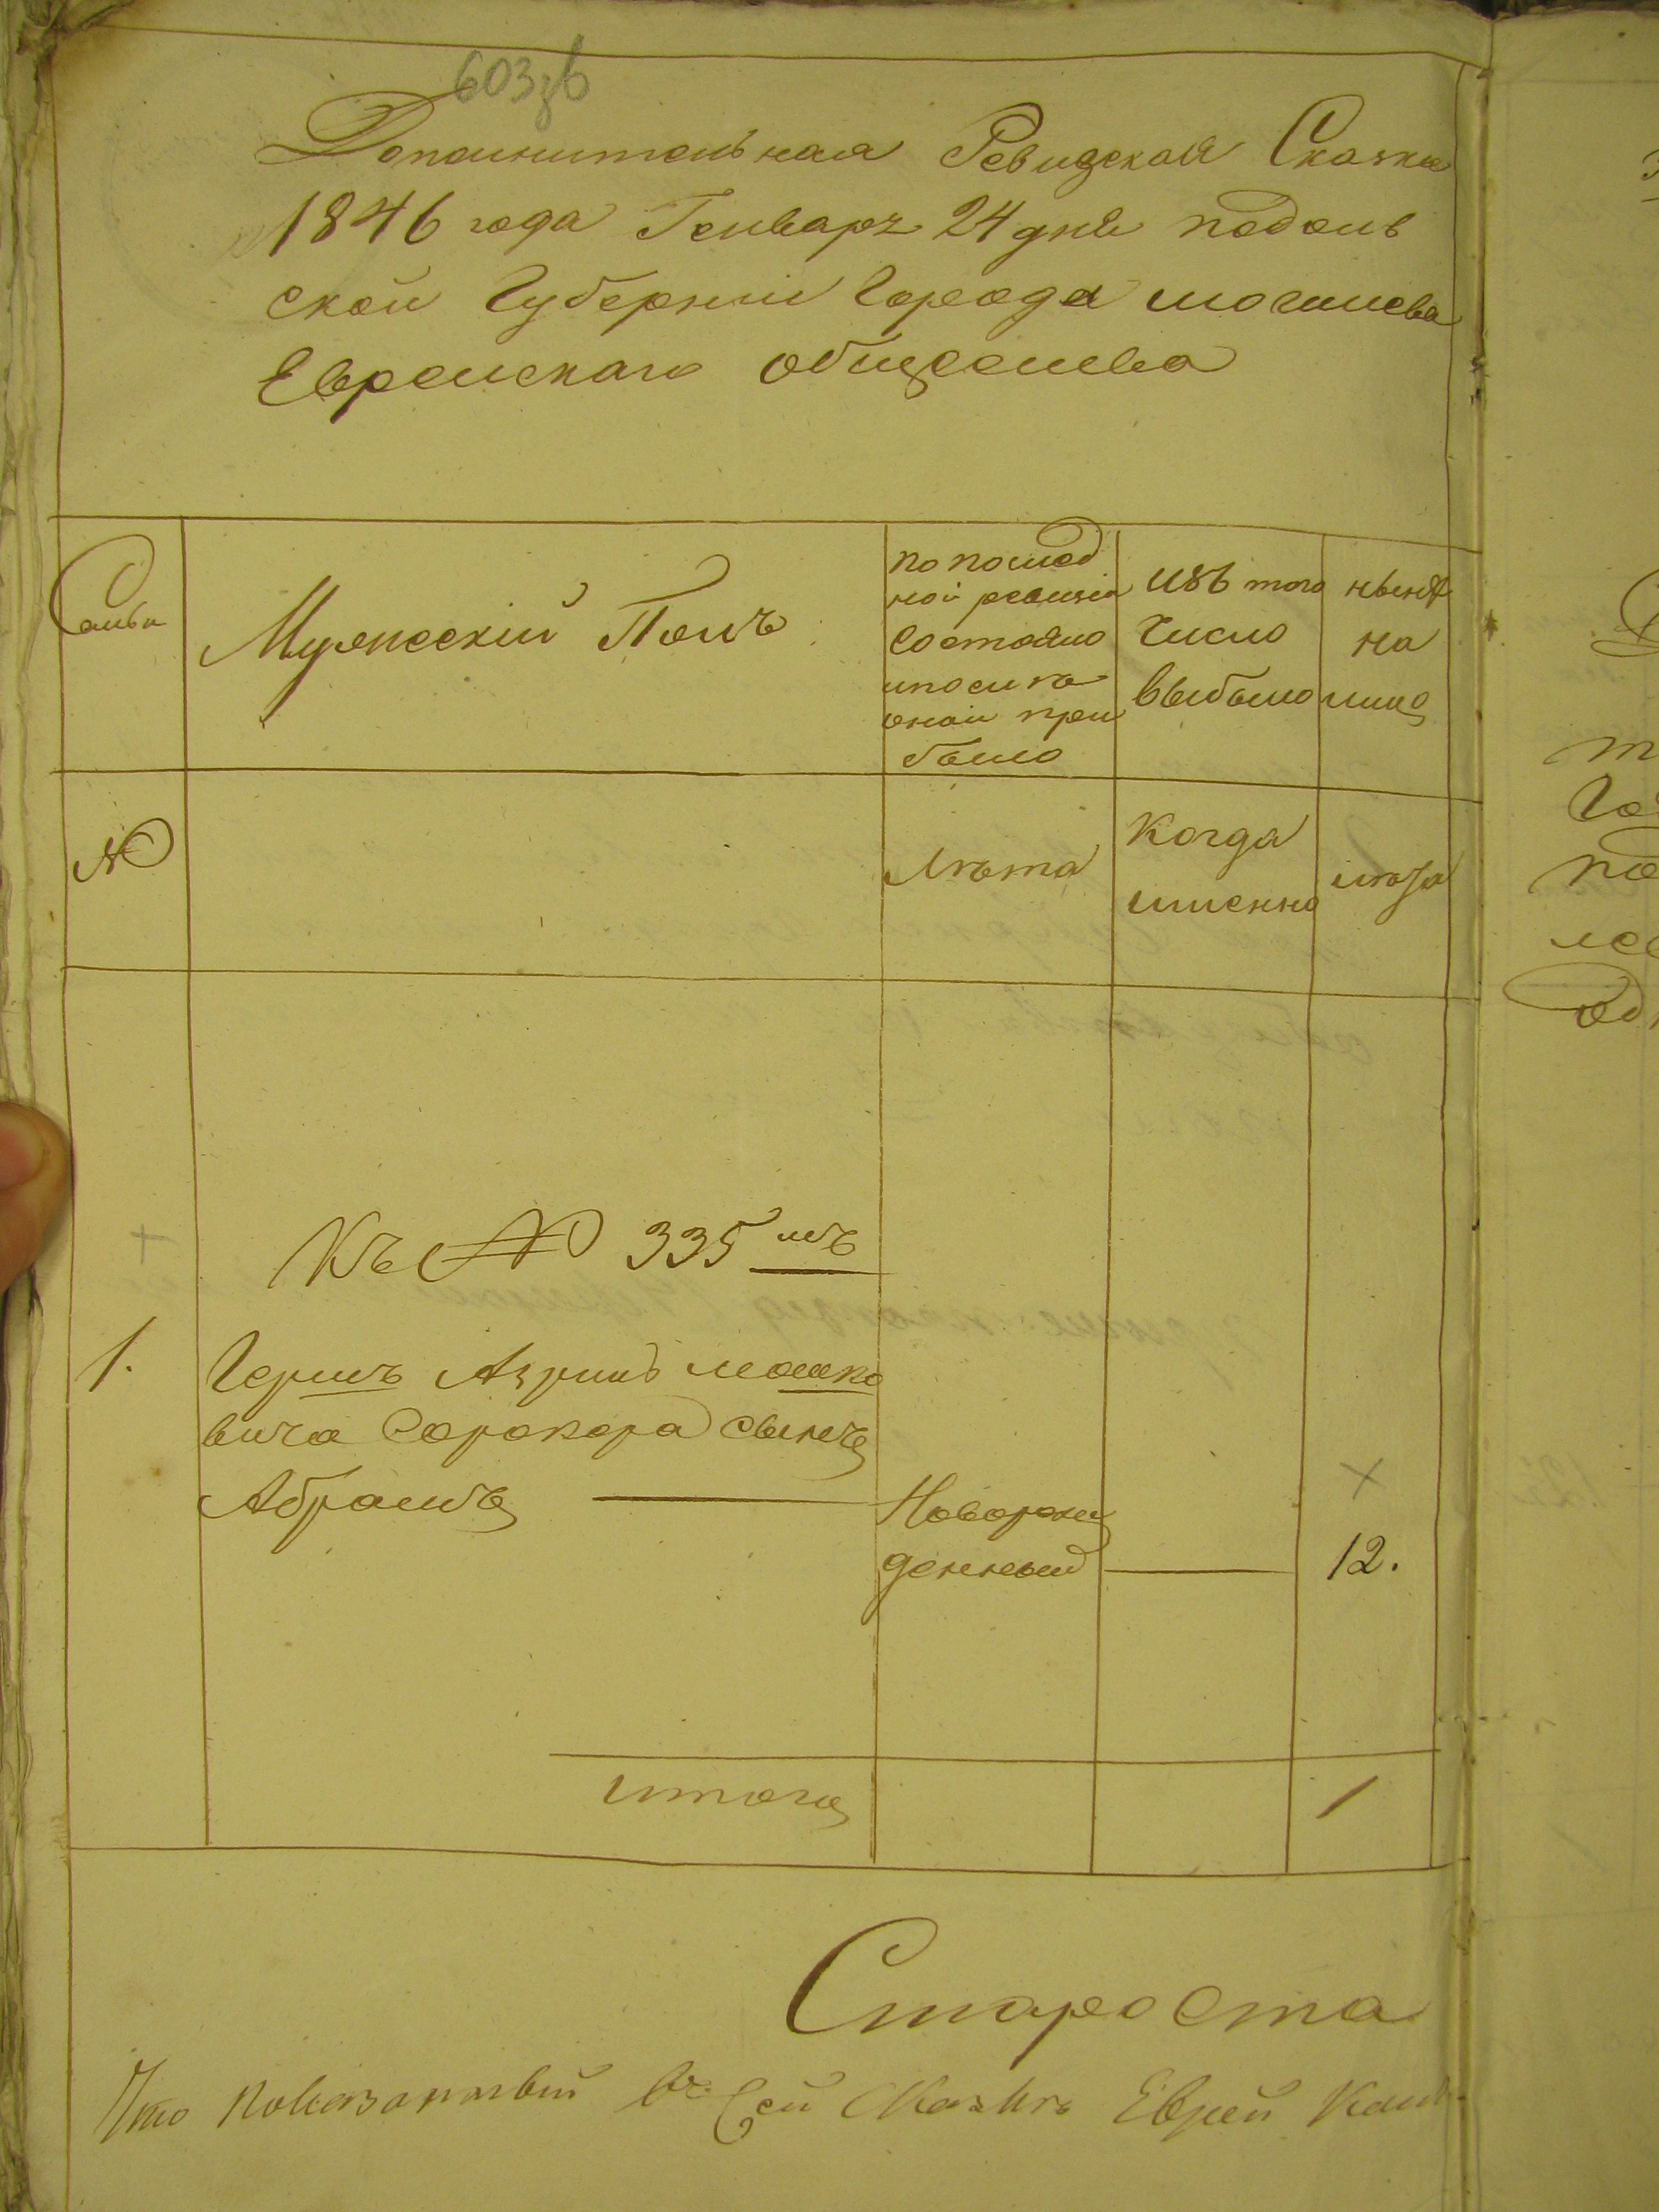 603зв
Дополнительная Ревизская Сказка
1846 года Генваря 24 дня подоль
ской Губернии Города могилева
Еврейскаго общества
Семьи
Мужеский Полъ
по послед
ней ревизіи
состояло
и после
оной при
было
изъ того
число
выбыло
ныне
на
лицо
№
Лета
Когда
именно
лета
Къ № 335 му
1.
Гершъ Азрилъ мошко
вича Сорокера сынъ
Абрамъ
Новорож
денный
12.
итого
1
Староста
Что показанный въ Сей Сказке Еврей Какъ